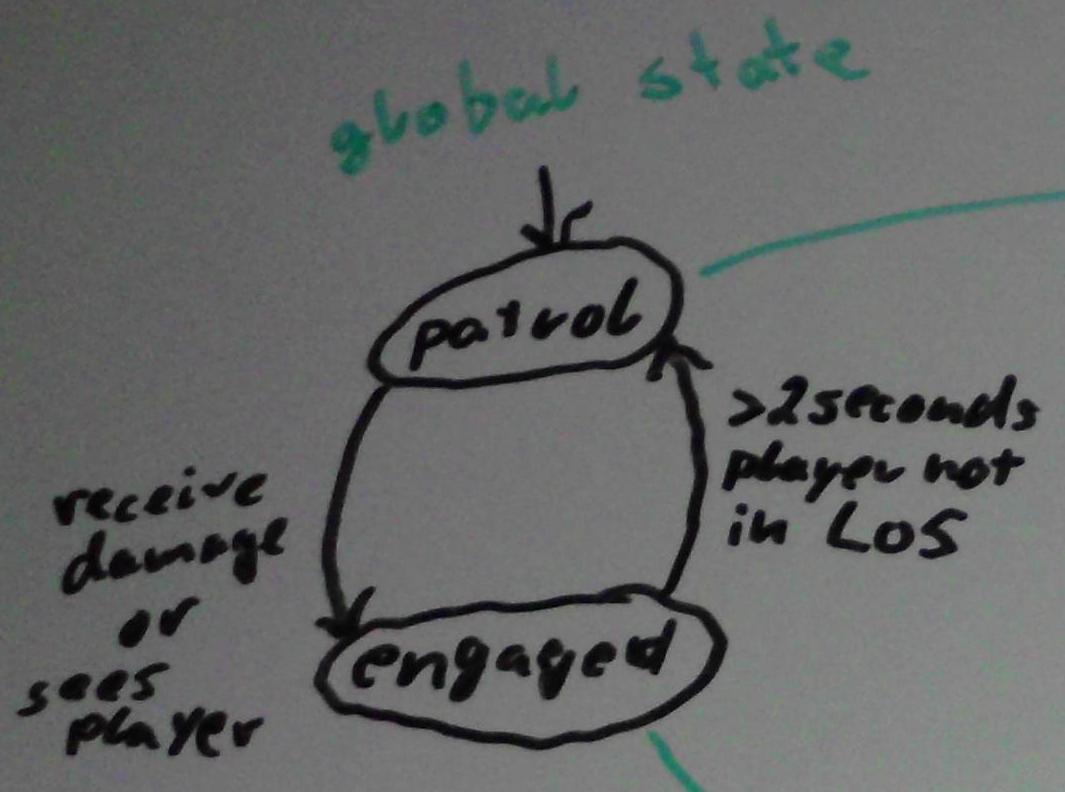 global state
patrol
>2seconds
player not
in LoS
receive
damage
or
sees
player
engaged